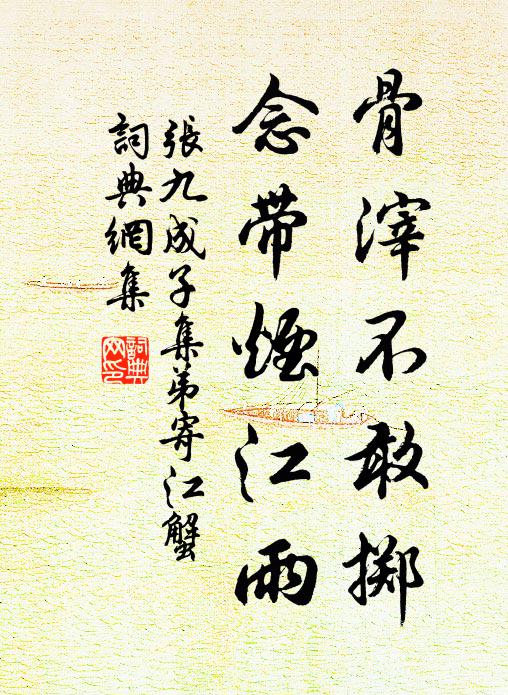 骨滓不敢擲
念帶煙江雨
張九成子集弟寄江蟹
詞典網集
詞典
网印